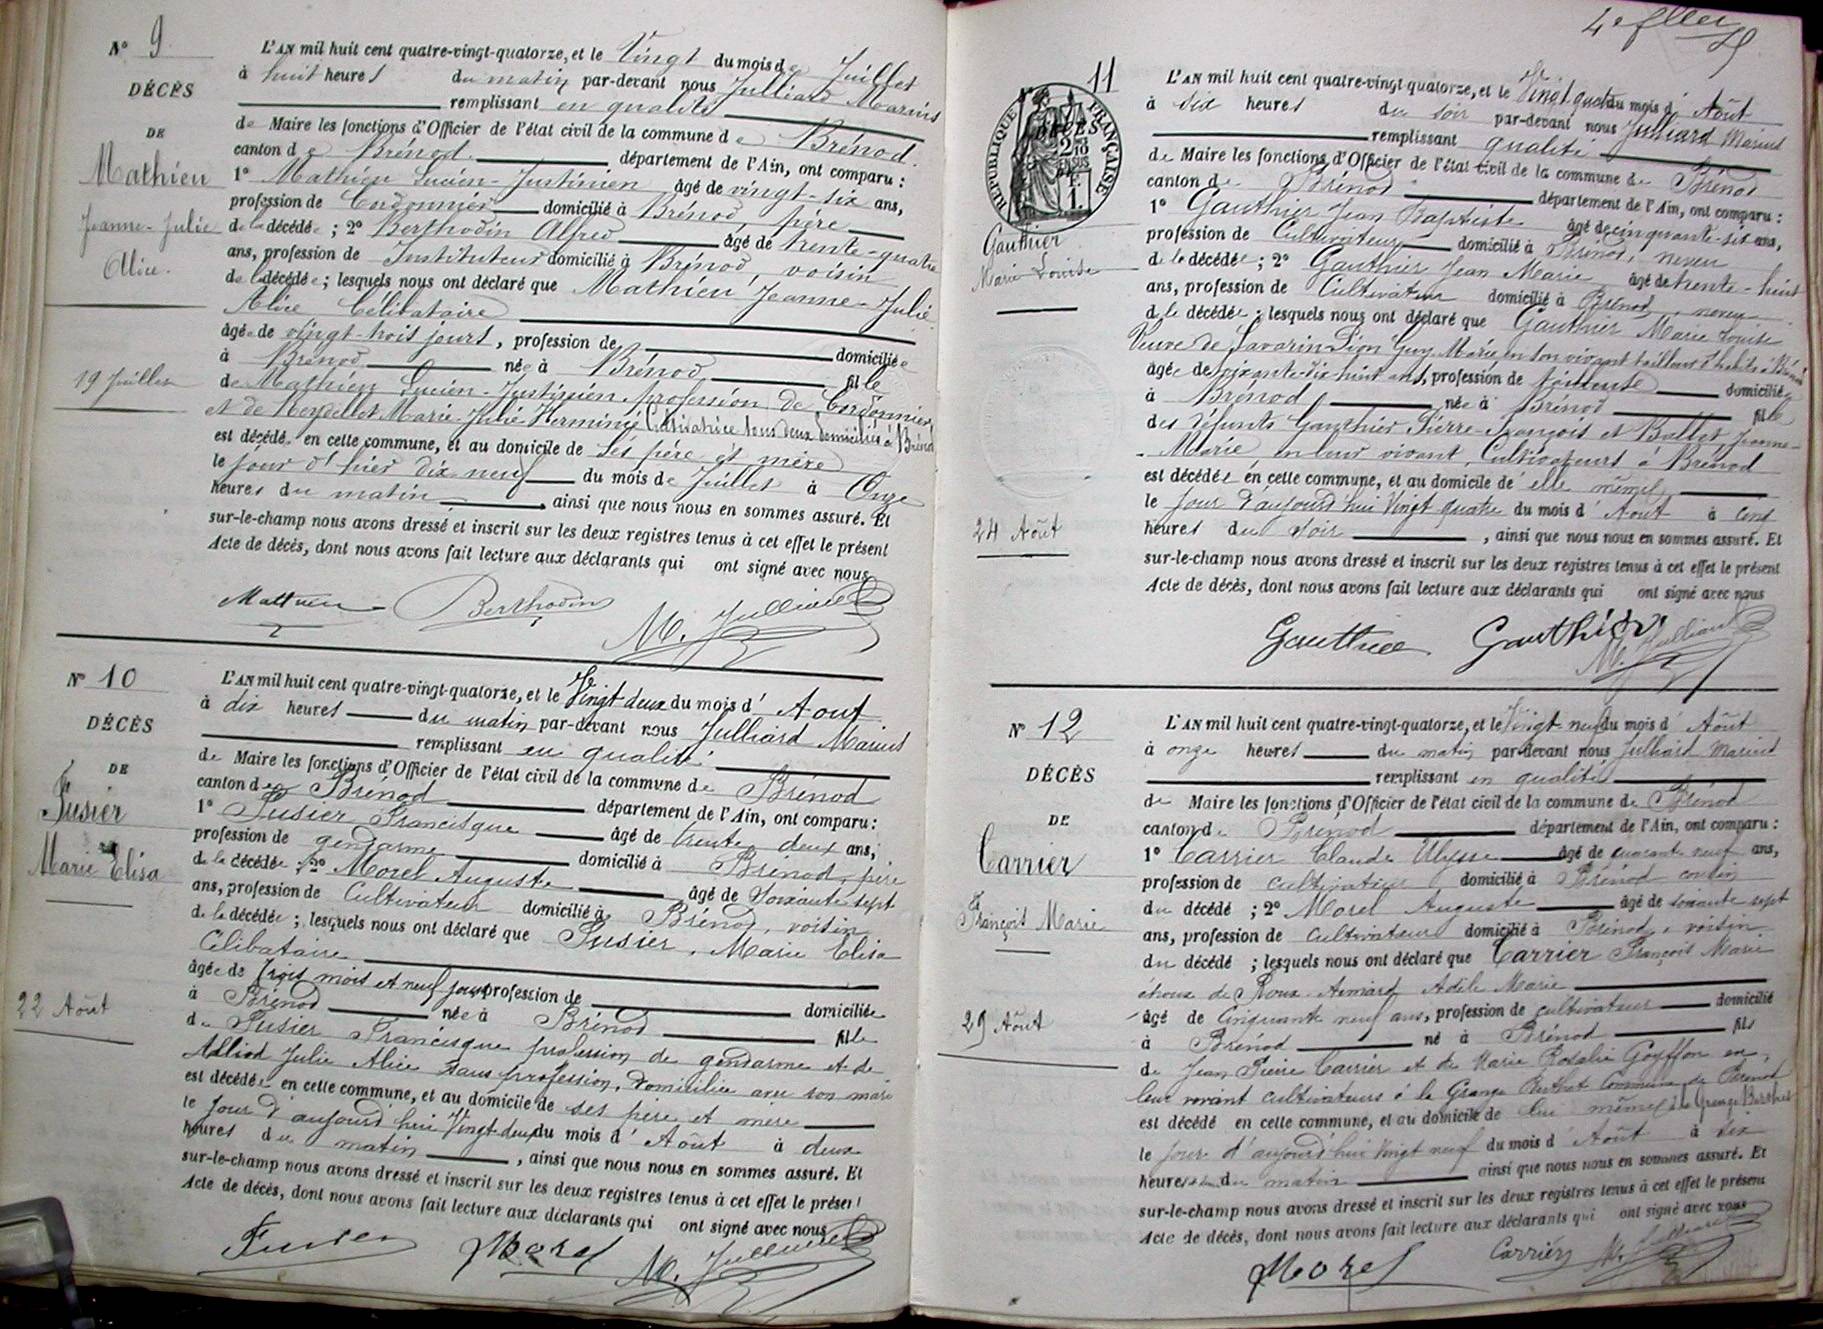 N° 9
DÉCÈS
DE
Mathieu
Jeanne-Julie
Alice.
19 Juillet
L'AN mil huit cent quatre-vingt-quatorze, et le Vingt du mois de Juillet
à huit heures du matin par-devant nous Julliard Marius
remplissant en qualité
de Maire les fonctions d'Officier de l'état civil de la commune de Brénod.
canton de Brénod. département de l'Ain, ont comparu :
1° Mathieu Lucien-Justinien âgé de vingt-six ans,
profession de Cordonnier domicilié à Brénod, père
de la décédée ; 2° Berthodin Alfred âgé de trente-quatre
ans, profession de Instituteur domicilié à Brénod, voisin
de la décédée ; lesquels nous ont déclaré que Mathieu Jeanne-Julie
Alice Célibataire
âgée de vingt-trois jours, profession de domiciliée
à Brénod née à Brénod fille
de Mathieu Lucien-Justinien profession de Cordonnier
et de Marie-Julie-Herminie Cultivatrice tous deux domiciliés à Brénod
est décédée en cette commune, et au domicile de ses père et mère
le jour d'hier dix neuf du mois de Juillet à Onze
heures du matin ainsi que nous nous en sommes assuré. Et
sur-le-champ nous avons dressé et inscrit sur les deux registres tenus à cet effet le présent
Acte de décès, dont nous avons fait lecture aux déclarants qui ont signé avec nous
Mathieu Berthodin M. Julliard
N° 10
DÉCÈS
DE
Fusier
Marie Elisa
22 Août
L'AN mil huit cent quatre-vingt-quatorze, et le Vingt deux du mois d'Aout
à dix heures du matin par-devant nous Julliard Marius
remplissant en qualité
de Maire les fonctions d'Officier de l'état civil de la commune de Brénod
canton de Brénod département de l'Ain, ont comparu :
1° Fusier Francisque âgé de trente deux ans,
profession de gendarme domicilié à Brénod, père
de la décédée 2° Morel Auguste âgé de Soixante sept
ans, profession de Cultivateur domicilié à Brénod, voisin
de la décédée ; lesquels nous ont déclaré que Fusier, Marie Elisa
Célibataire
âgée de trois mois et neuf jours profession de domiciliée
à Brénod née à Brénod fille
de Fusier Francisque profession de gendarme et de
Julie Alice sans profession, domiciliée avec son mari
est décédée en cette commune, et au domicile de ses père et mère
le Jour d'aujourd'hui Vingt deux du mois d'Août à deux
heures du matin, ainsi que nous nous en sommes assuré. Et
sur-le-champ nous avons dressé et inscrit sur les deux registres tenus à cet effet le présent
Acte de décès, dont nous avons fait lecture aux déclarants qui ont signé avec nous
Fusier Morel M. Julliard
11
RÉPUBLIQUE FRANÇAISE
DÉCÈS
Gauthier
Marie Louise
24 Août
L'AN mil huit cent quatre-vingt-quatorze, et le Vingt quatre du mois d'Août
à six heures du soir par-devant nous Julliard Marius
remplissant qualité
de Maire les fonctions d'Officier de l'état civil de la commune de Brénod
canton de Brénod département de l'Ain, ont comparu :
1° Gauthier Jean Baptiste âgé de cinquante-six ans,
profession de Cultivateur domicilié à Brénod, neveu
de la décédée ; 2° Gauthier Jean Marie âgé de trente-huit
ans, profession de Cultivateur domicilié à Brénod, neveu
de la décédée ; lesquels nous ont déclaré que Gauthier Marie Louise
Veuve de Savarin Guy Marie en son vivant tailleur d'habits à Brénod
âgée de soixante-dix huit ans, profession de domiciliée
à Brénod née à Brénod fille
des défunts Gauthier Pierre-François et Ballet Jeanne-
Marie en leur vivant, Cultivateurs à Brénod
est décédée en cette commune, et au domicile de elle même
le Jour d'aujourd'hui Vingt quatre du mois d'Aout à cinq
heures du soir, ainsi que nous nous en sommes assuré. Et
sur-le-champ nous avons dressé et inscrit sur les deux registres tenus à cet effet le présent
Acte de décès, dont nous avons fait lecture aux déclarants qui ont signé avec nous
Gauthier Gauthier M. Julliard
N° 12
DÉCÈS
DE
Carrier
François Marie
29 Août
L'AN mil huit cent quatre-vingt-quatorze, et le Vingt neuf du mois d'Août
à onze heures du matin par-devant nous Julliard Marius
remplissant en qualité
de Maire les fonctions d'Officier de l'état civil de la commune de Brénod
canton de Brénod département de l'Ain, ont comparu :
1° Carrier Claude Ulysse âgé de quarante neuf ans,
profession de cultivateur domicilié à Brénod cousin
du décédé ; 2° Morel Auguste âgé de soixante sept
ans, profession de cultivateur domicilié à Brénod, voisin
du décédé ; lesquels nous ont déclaré que Carrier François Marie
époux de Roux-Aimard Adèle Marie
âgé de Cinquante neuf ans, profession de cultivateur domicilié
à Brénod né à Brénod fils
de Jean Pierre Carrier et de Marie Rosalie Goyffon en
leur vivant cultivateurs à la Grange Berthet Commune de Brénod
est décédé en cette commune, et au domicile de lui même, à la Grange Berthet
le jour d'aujourd'hui Vingt neuf du mois d'Août à six
heures du matin ainsi que nous nous en sommes assuré. Et
sur-le-champ nous avons dressé et inscrit sur les deux registres tenus à cet effet le présent
Acte de décès, dont nous avons fait lecture aux déclarants qui ont signé avec nous
Morel Carrier M. Julliard